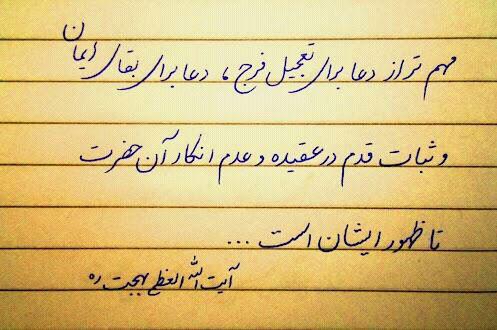 مهم تر از دعا برای تعجیل فرج، دعا برای بقای ایمان
و ثبات قدم در عقیده و عدم انکار آن حضرت
تا ظهور ایشان است ...
آیت الله العظمی بهجت ره